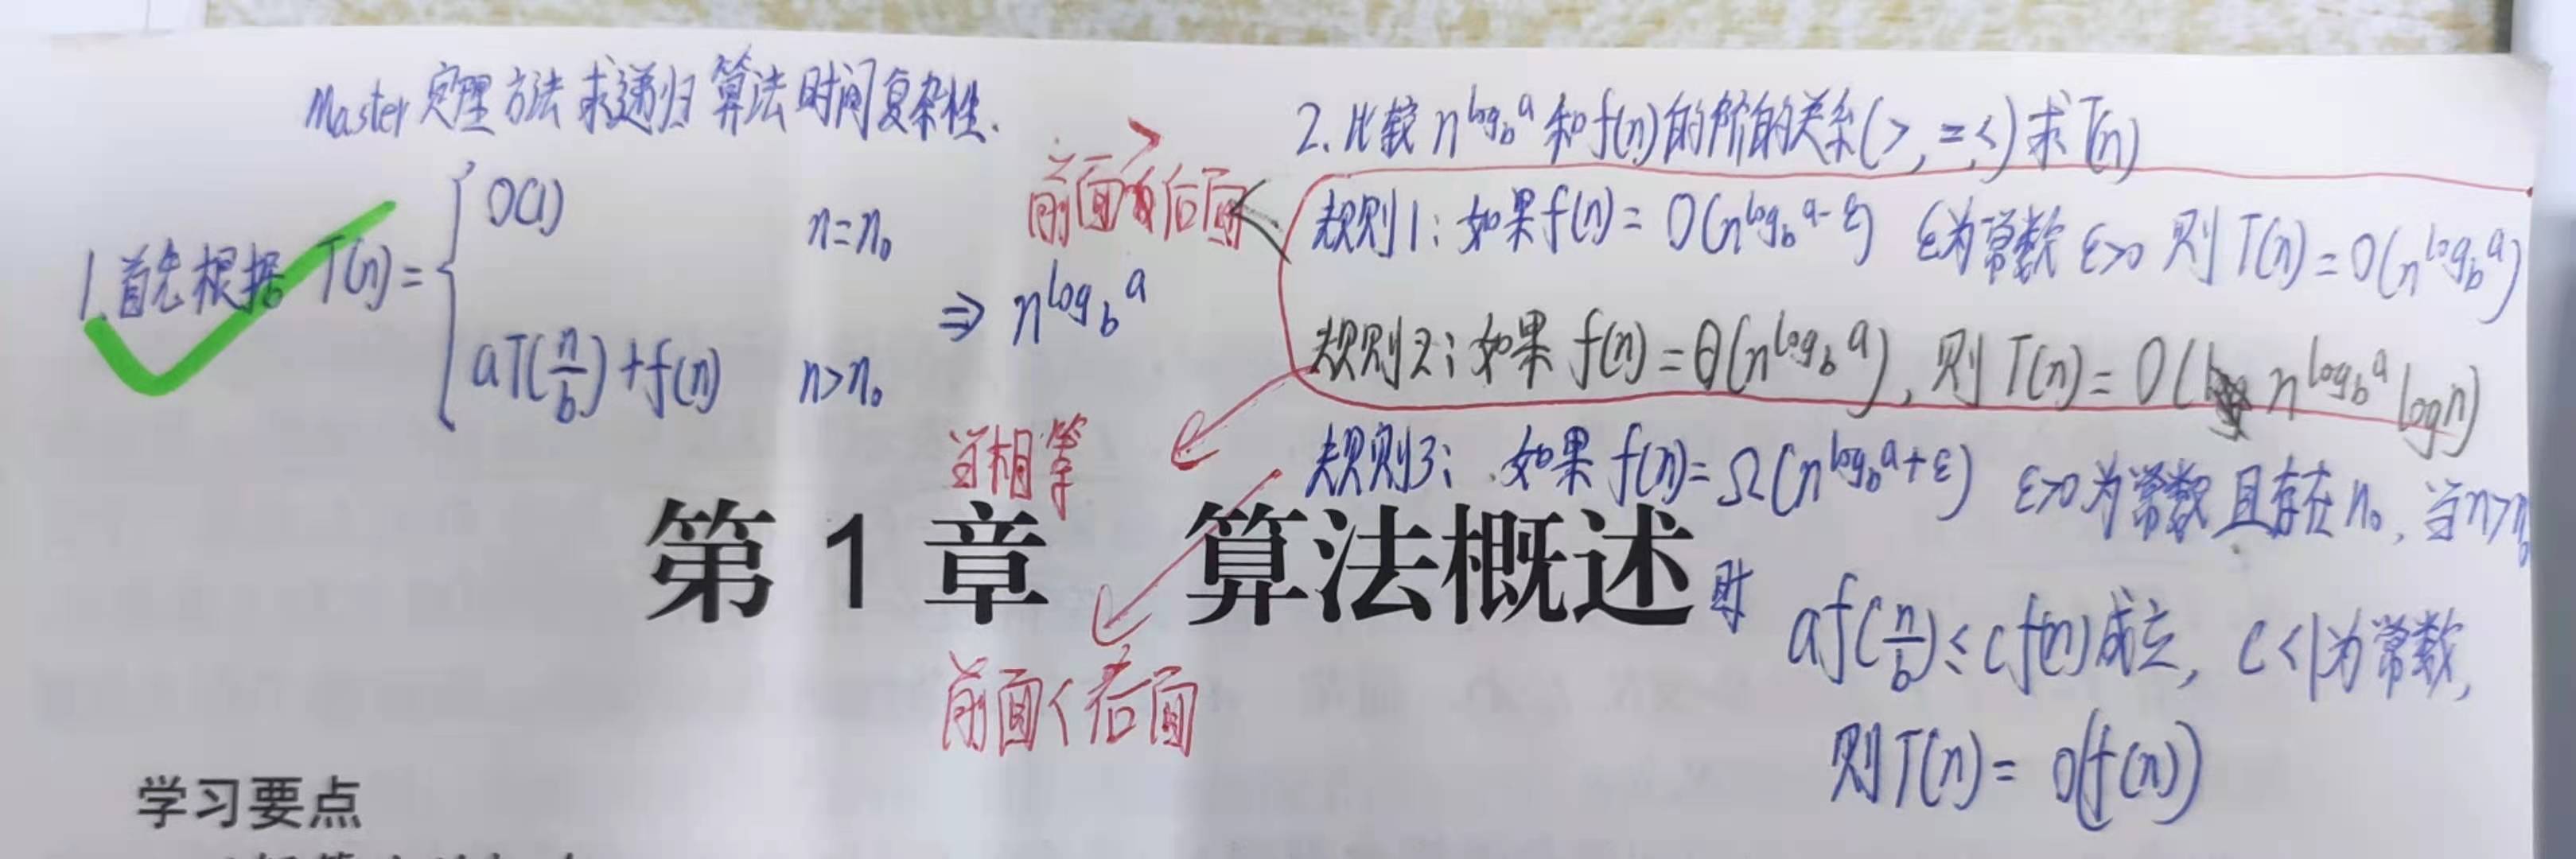 Master定理方法求递归算法时间复杂性.
1.首先根据 T(n)= { O(1) n=n₀
aT(n/b)+f(n) n>n₀
⇒ n^(log_b a)
2.比较 n^(log_b a) 和f(n)的阶的关系(>,=,<)求T(n)
前面>后面
规则1: 如果f(n)= O(n^(log_b a-ε)) ε为常数 ε>0 则 T(n)=O(n^(log_b a))
规则2: 如果 f(n)=θ(n^(log_b a)), 则 T(n)= O(n^(log_b a) logn)
当相等
规则3: 如果 f(n)=Ω(n^(log_b a+ε)) ε>0为常数 且存在n₀, 当n>n₀
时 af(n/b)≤cf(n)成立, c<1为常数,
则T(n)= O(f(n))
前面<后面
第1章 算法概述
学习要点